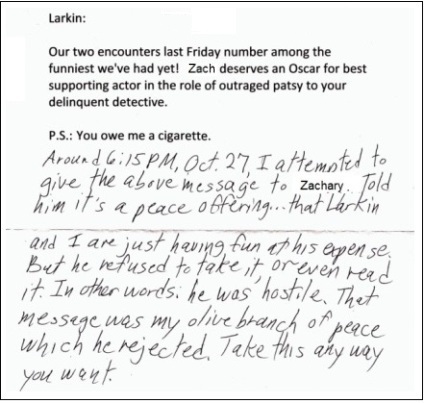 Larkin:
Our two encounters last Friday number among the
funniest we've had yet!  Zach deserves an Oscar for best
supporting actor in the role of outraged patsy to your
delinquent detective.
P.S.: You owe me a cigarette.
Around 6:15PM, Oct. 27, I attempted to
give the above message to Zachary. Told
him it's a peace offering...that Larkin
and I are just having fun at his expense.
But he refused to take it, or even read
it. In other words: he was hostile. That
message was my olive branch of peace
which he rejected. Take this any way
you want.